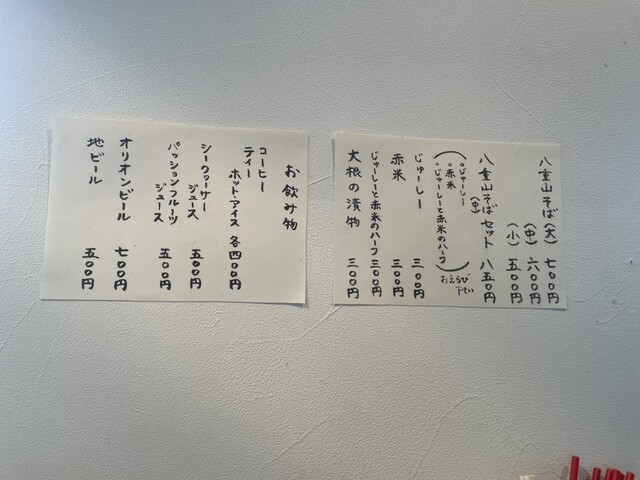 八重山そば(大) 七〇〇円
(中) 六〇〇円
(小) 五〇〇円
八重山そばセット 八五〇円
(中)
(。じゅーしー
。赤米
。じゅーしーと赤米のハーフ)
おえらび下さい
じゅーしー 三〇〇円
赤米 三〇〇円
じゅーしーと赤米のハーフ 三〇〇円
大根の漬物 三〇〇円
お飲み物
コーヒー
ティー
ホット・アイス 各四〇〇円
シークヮーサージュース 五〇〇円
パッションフルーツジュース 五〇〇円
オリオンビール 七〇〇円
地ビール 五〇〇円